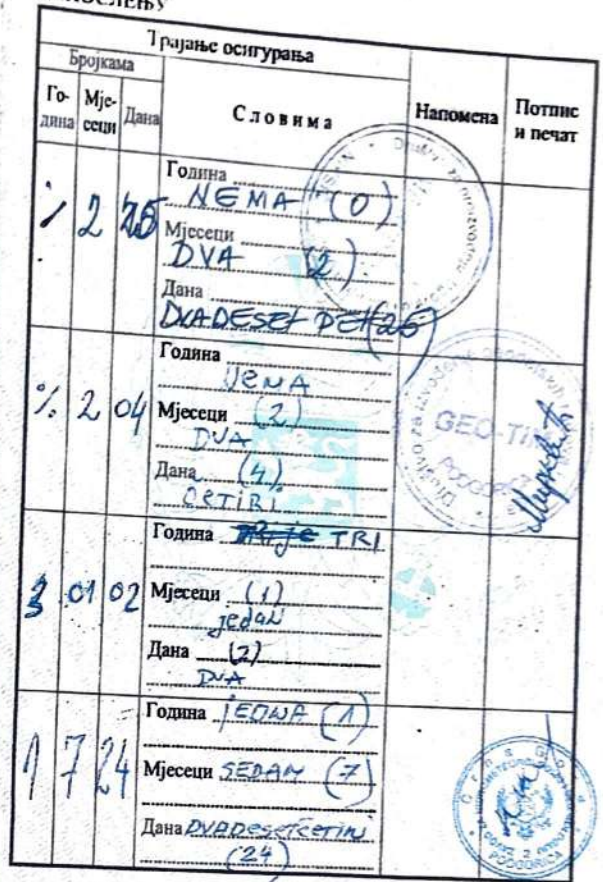 Трајање осигурања
Бројкама
Го-
дина
Мје-
сеци
Дана
Словима
Напомена
Потпис
и печат
2 25
Година
NEMA (0)
Мјесеци
DVA (2)
Дана
DVADESET PET (25)
% 2 04
Година
NEMA
Мјесеци (2)
DVA
Дана (4)
ČETIRI
GEO-TIM
Društvo za izvođenje
Podgorica
3 01 02
Година TRI
Мјесеци (1)
jedan
Дана (2)
DVA
1 7 24
Година JEDNA (1)
Мјесеци SEDAM (7)
Дана DVADESETČETIRI
(24)
Crna Gora
PODGORICA